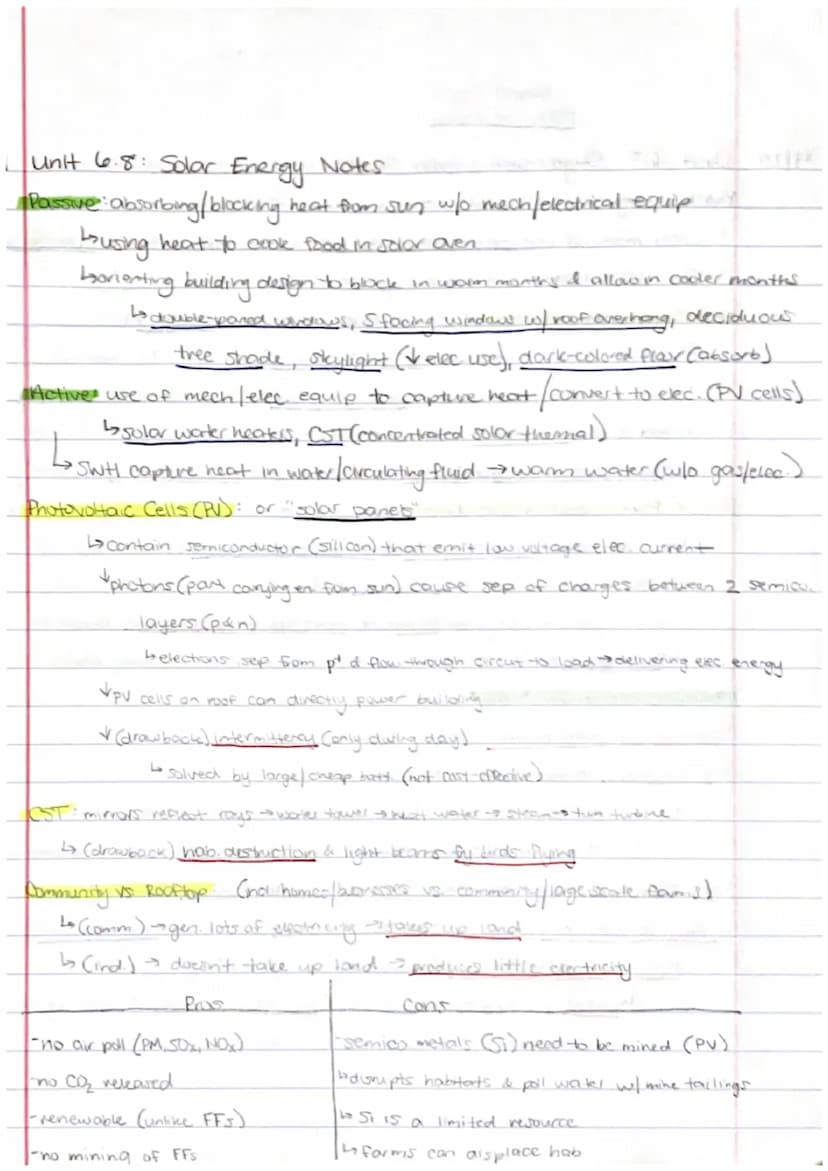 Unit 6.8: Solar Energy Notes
Passive: absorbing/blocking heat from sun w/o mech/electrical equip
↳using heat to cook food in solar oven
↳orienting building design to block in warm months & allow in cooler months
↳double-paned windows, S facing windows w/ roof overhang, deciduous
tree shade, skylight (↓ elec use), dark-colored floor (absorb)
Active: use of mech/elec. equip to capture heat/convert to elec. (PV cells)
↳solar water heaters, CST (concentrated solar thermal)
↳SWH capture heat in water/circulating fluid → warm water (w/o gas/elec.)
Photovoltaic Cells (PV): or "solar panels"
↳contain semiconductor (silicon) that emit low voltage elec. current
↳photons (part carrying en from sun) cause sep of charges between 2 semico.
layers (p&n)
↳electrons sep from p+ & flow through circut to load → delivering elec energy
↳PV cells on roof can directly power building
↳(drawback) intermittency (only during day)
↳solved by large/cheap batt. (not cost-effective)
CST: mirrors reflect rays → water tower → heat water → steam → turn turbine
↳(drawback) hab. destruction & light beams fry birds flying
Community vs Rooftop (ind. homes/businesses vs. community/large scale farms)
↳(comm.) → gen. lots of electricity → takes up land
↳(ind.) → doesn't take up land → produces little electricity
Pros Cons
-no air poll (PM, SOx, NOx) -semico metals (Si) need to be mined (PV)
-no CO₂ released ↳disrupts habitats & poll water w/ mine tailings
-renewable (unlike FFs) ↳Si is a limited resource
-no mining of FFs ↳farms can displace hab